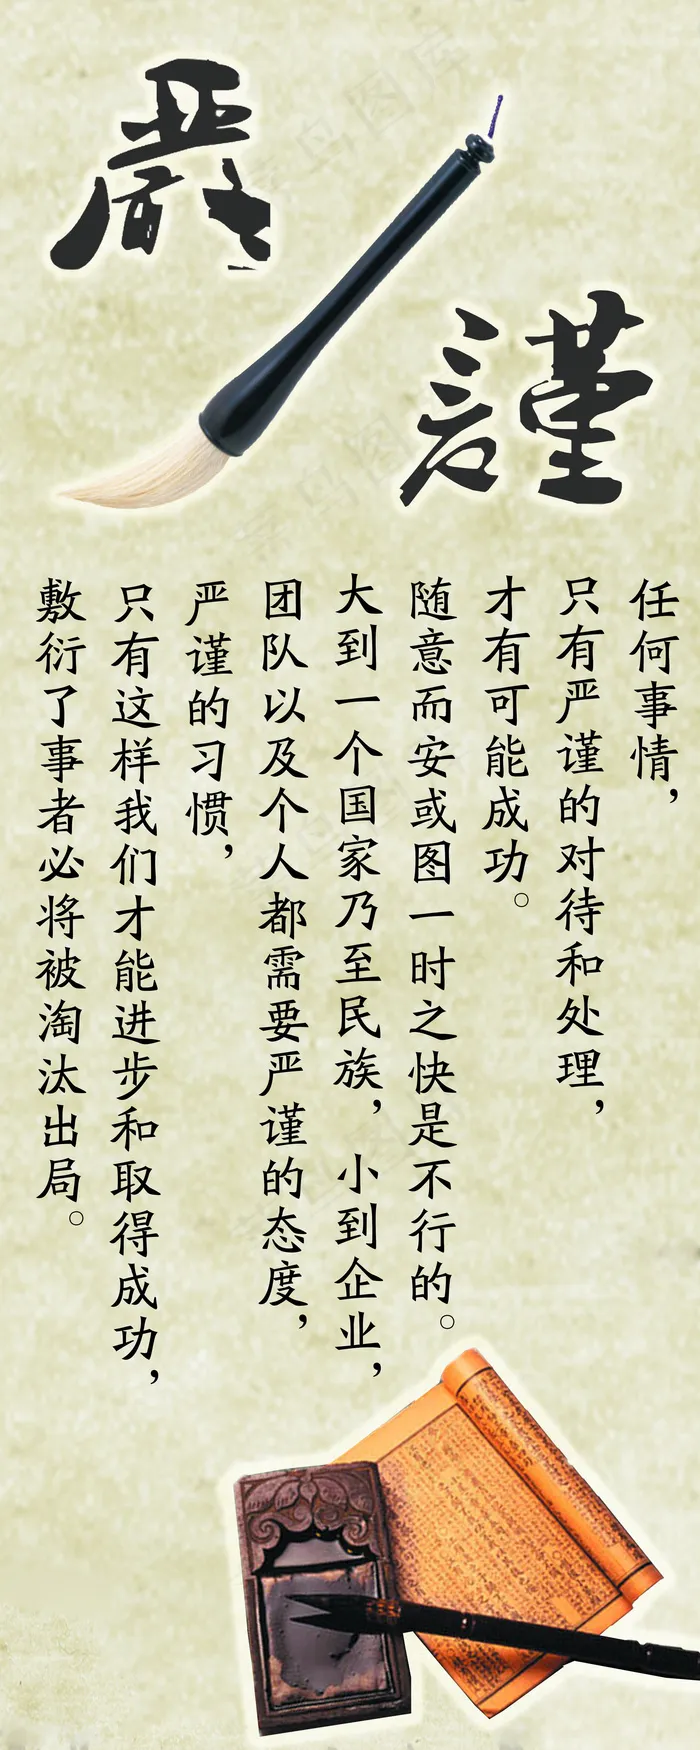 嚴
謹
任何事情，
只有严谨的对待和处理，
才有可能成功。
随意而安或图一时之快是不行的。
大到一个国家乃至民族，小到企业，
团队以及个人都需要严谨的态度，
严谨的习惯，
只有这样我们才能进步和取得成功，
敷衍了事者必将被淘汰出局。